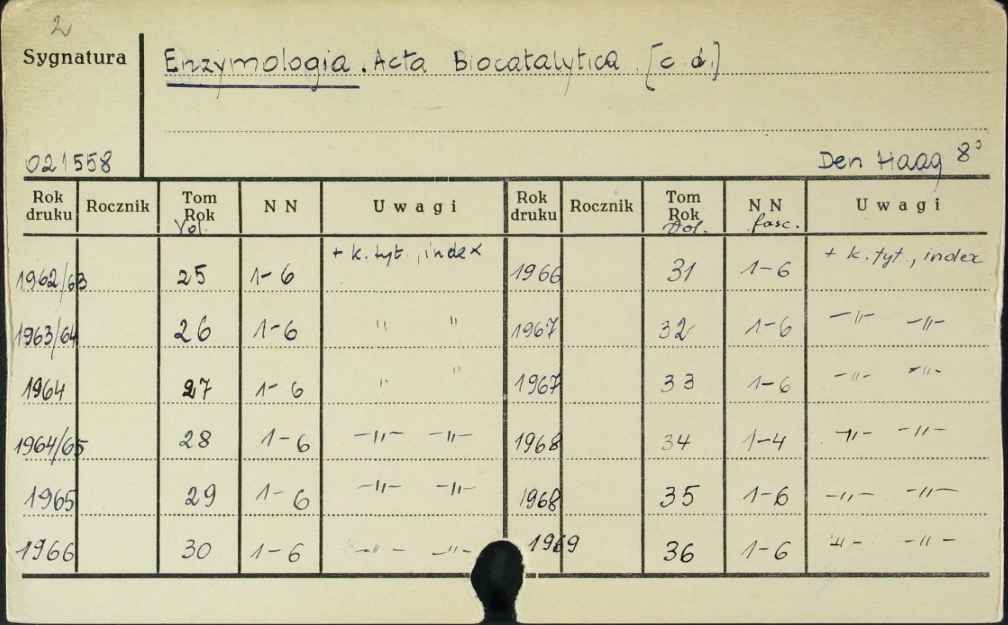 2
Sygnatura Enzymologia. Acta Biocatalytica [c.d.]
021558 Den Haag 8°
Rok druku Rocznik Tom Rok Vol. NN Uwagi Rok druku Rocznik Tom Rok Vol. NN fasc. Uwagi
1962/63 25 1-6 + k. tyt., index 1966 31 1-6 + k. tyt., index
1963/64 26 1-6 " " 1967 32 1-6 -"- -"-
1964 27 1-6 " " 1967 33 1-6 -"- -"-
1964/65 28 1-6 -"- -"- 1968 34 1-4 -"- -"-
1965 29 1-6 -"- -"- 1968 35 1-6 -"- -"-
1966 30 1-6 -"- -"- 1969 36 1-6 -"- -"-